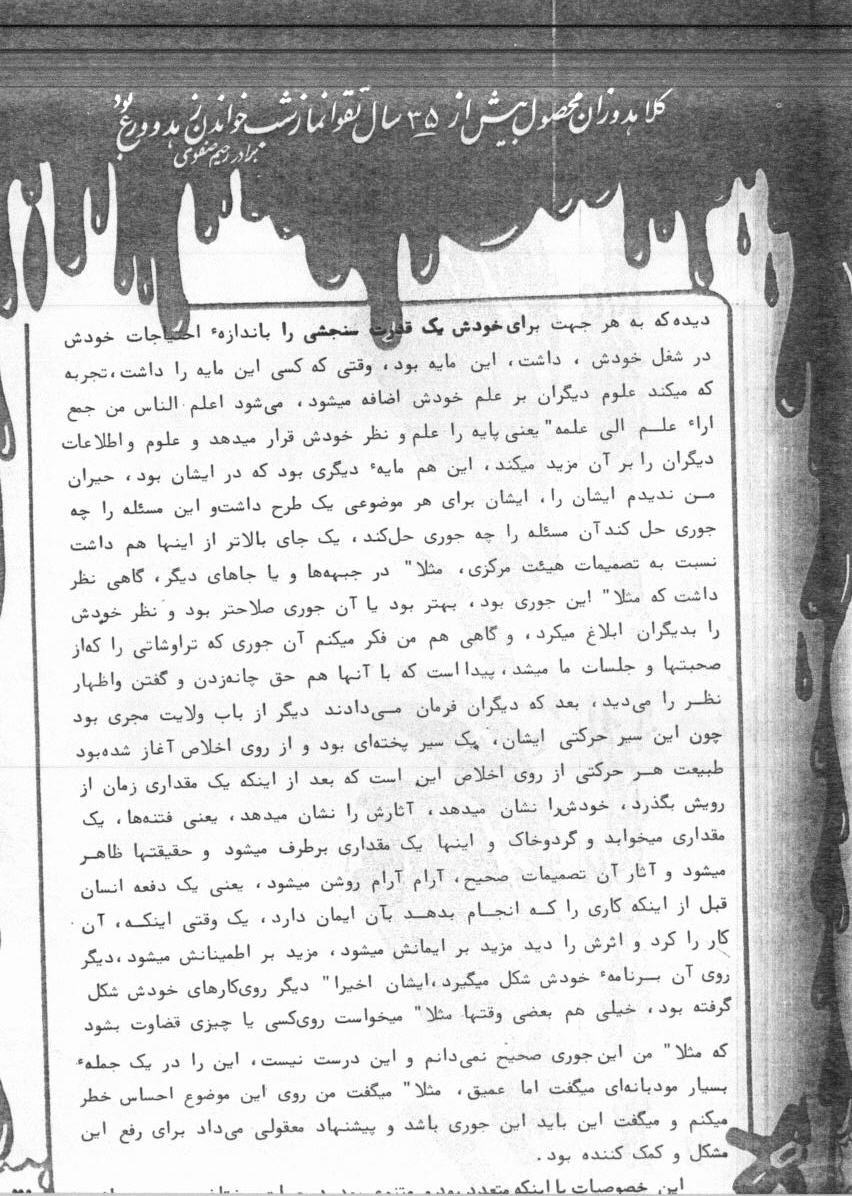 کلاهدوزان محصول بیش از ۳۵ سال تقوا نماز شب خواندن زهد و ورع بود
برادر رحیم صفوی
دیده که به هر جهت برای خودش یک قدرت سنجشی را باندازهٔ احتیاجات خودش
در شغل خودش ، داشت، این مایه بود، وقتی که کسی این مایه را داشت، تجربه
که میکند علوم دیگران بر علم خودش اضافه میشود، می‌شود اعلم الناس من جمع
اراء علـــم الی علمه" یعنی پایه را علم و نظر خودش قرار میدهد و علوم و اطلاعات
دیگران را بر آن مزید میکند، این هم مایهٔ دیگری بود که در ایشان بود، حیران
مــن ندیدم ایشان را، ایشان برای هر موضوعی یک طرح داشت‌و این مسئله را چه
جوری حل کند آن مسئله را چه جوری حل‌کند، یک جای بالاتر از اینها هم داشت
نسبت به تصمیمات هیئت مرکزی، مثلا" در جبهه‌ها و یا جاهای دیگر، گاهی نظر
داشت که مثلا" این جوری بود، بهتر بود یا آن جوری صلاحتر بود و نظر خودش
را بدیگران ابلاغ میکرد، و گاهی هم من فکر میکنم آن جوری که تراوشاتی را که‌از
صحبتها و جلسات ما میشد، پیدا است که با آنها هم حق چانه‌زدن و گفتن واظهار
نظــر را می‌دید، بعد که دیگران فرمان مــی‌دادند دیگر از باب ولایت مجری بود
چون این سیر حرکتی ایشان، یک سیر پخته‌ای بود و از روی اخلاص آغاز شده‌بود
طبیعت هــر حرکتی از روی اخلاص این است که بعد از اینکه یک مقداری زمان از
رویش بگذرد، خودش‌را نشان میدهد، آثارش را نشان میدهد، یعنی فتنه‌ها، یک
مقداری میخوابد و گردوخاک و اینها یک مقداری برطرف میشود و حقیقتها ظاهـر
میشود و آثار آن تصمیمات صحیح، آرام آرام روشن میشود، یعنی یک دفعه انسان
قبل از اینکه کاری را کــه انجــام بدهــد بآن ایمان دارد، یک وقتی اینکــه، آن
کار را کرد و اثرش را دید مزید بر ایمانش میشود، مزید بر اطمینانش میشود، دیگر
روی آن بــرنامهٔ خودش شکل میگیرد، ایشان اخیرا" دیگر روی‌کارهای خودش شکل
گرفته بود، خیلی هم بعضی وقتها مثلا" میخواست روی‌کسی یا چیزی قضاوت بشود
که مثلا" من این جوری صحیح نمی‌دانم و این درست نیست، این را در یک جملهٔ
بسیار مودبانه‌ای میگفت اما عمیق، مثلا" میگفت من روی این موضوع احساس خطر
میکنم و میگفت این باید این جوری باشد و پیشنهاد معقولی می‌داد برای رفع این
مشکل و کمک کننده بود.
این خصوصیات با اینکه متعدد بود و متنوع بود